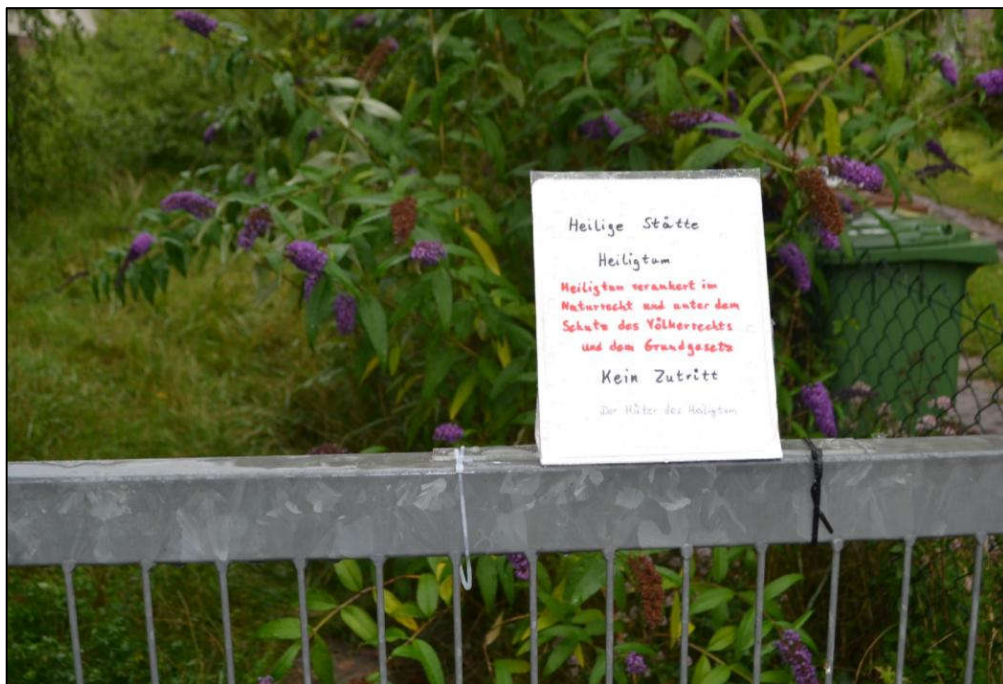 Heilige Stätte
Heiligtum
Heiligtum verankert im
Naturrecht und unter dem
Schutz des Völkerrechts
und dem Grundgesetz
Kein Zutritt
Der Hüter des Heiligtum